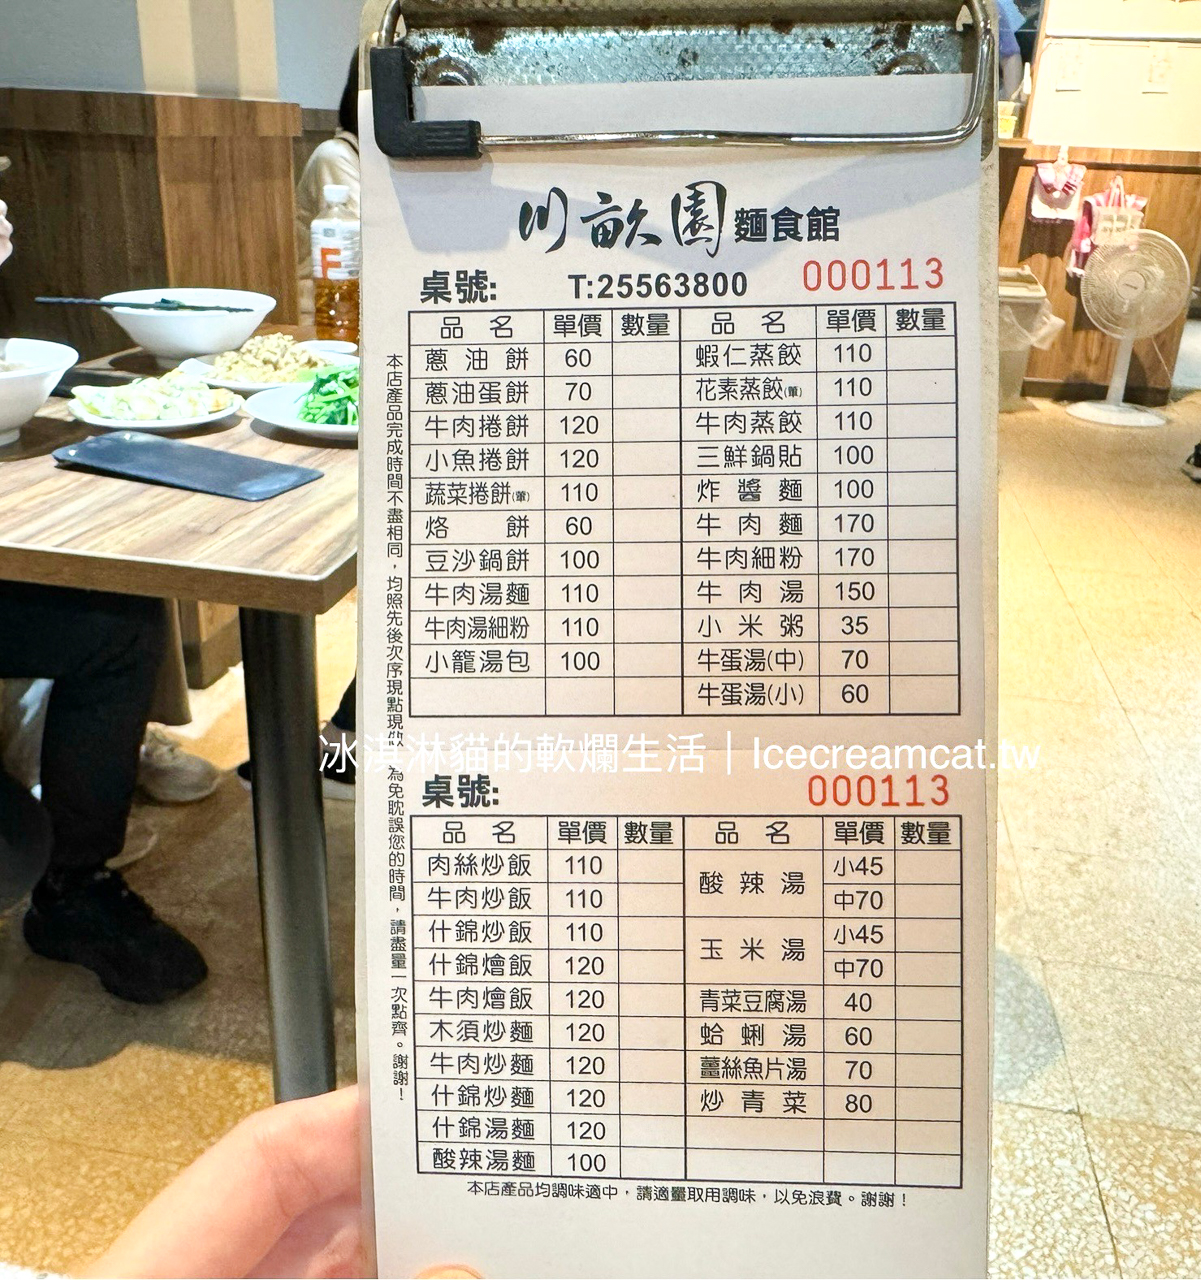 川畝園 麵食館
桌號: T:25563800 000113
品名 單價 數量 品名 單價 數量
蔥油餅 60 蝦仁蒸餃 110
蔥油蛋餅 70 花素蒸餃(葷) 110
牛肉捲餅 120 牛肉蒸餃 110
小魚捲餅 120 三鮮鍋貼 100
蔬菜捲餅(葷) 110 炸醬麵 100
烙餅 60 牛肉麵 170
豆沙鍋餅 100 牛肉細粉 170
牛肉湯麵 110 牛肉湯 150
牛肉湯細粉 110 小米粥 35
小籠湯包 100 牛蛋湯(中) 70
牛蛋湯(小) 60
本店產品完成時間不盡相同,均照先後次序現點現做 為免耽誤您的時間,請盡量一次點齊。謝謝!
冰淇淋貓的軟爛生活｜Icecreamcat.tw
桌號: 000113
品名 單價 數量 品名 單價 數量
肉絲炒飯 110 酸辣湯 小45
牛肉炒飯 110 中70
什錦炒飯 110 玉米湯 小45
什錦燴飯 120 中70
牛肉燴飯 120 青菜豆腐湯 40
木須炒麵 120 蛤蜊湯 60
牛肉炒麵 120 薑絲魚片湯 70
什錦炒麵 120 炒青菜 80
什錦湯麵 120
酸辣湯麵 100
本店產品均調味適中,請適量取用調味,以免浪費。謝謝!
F